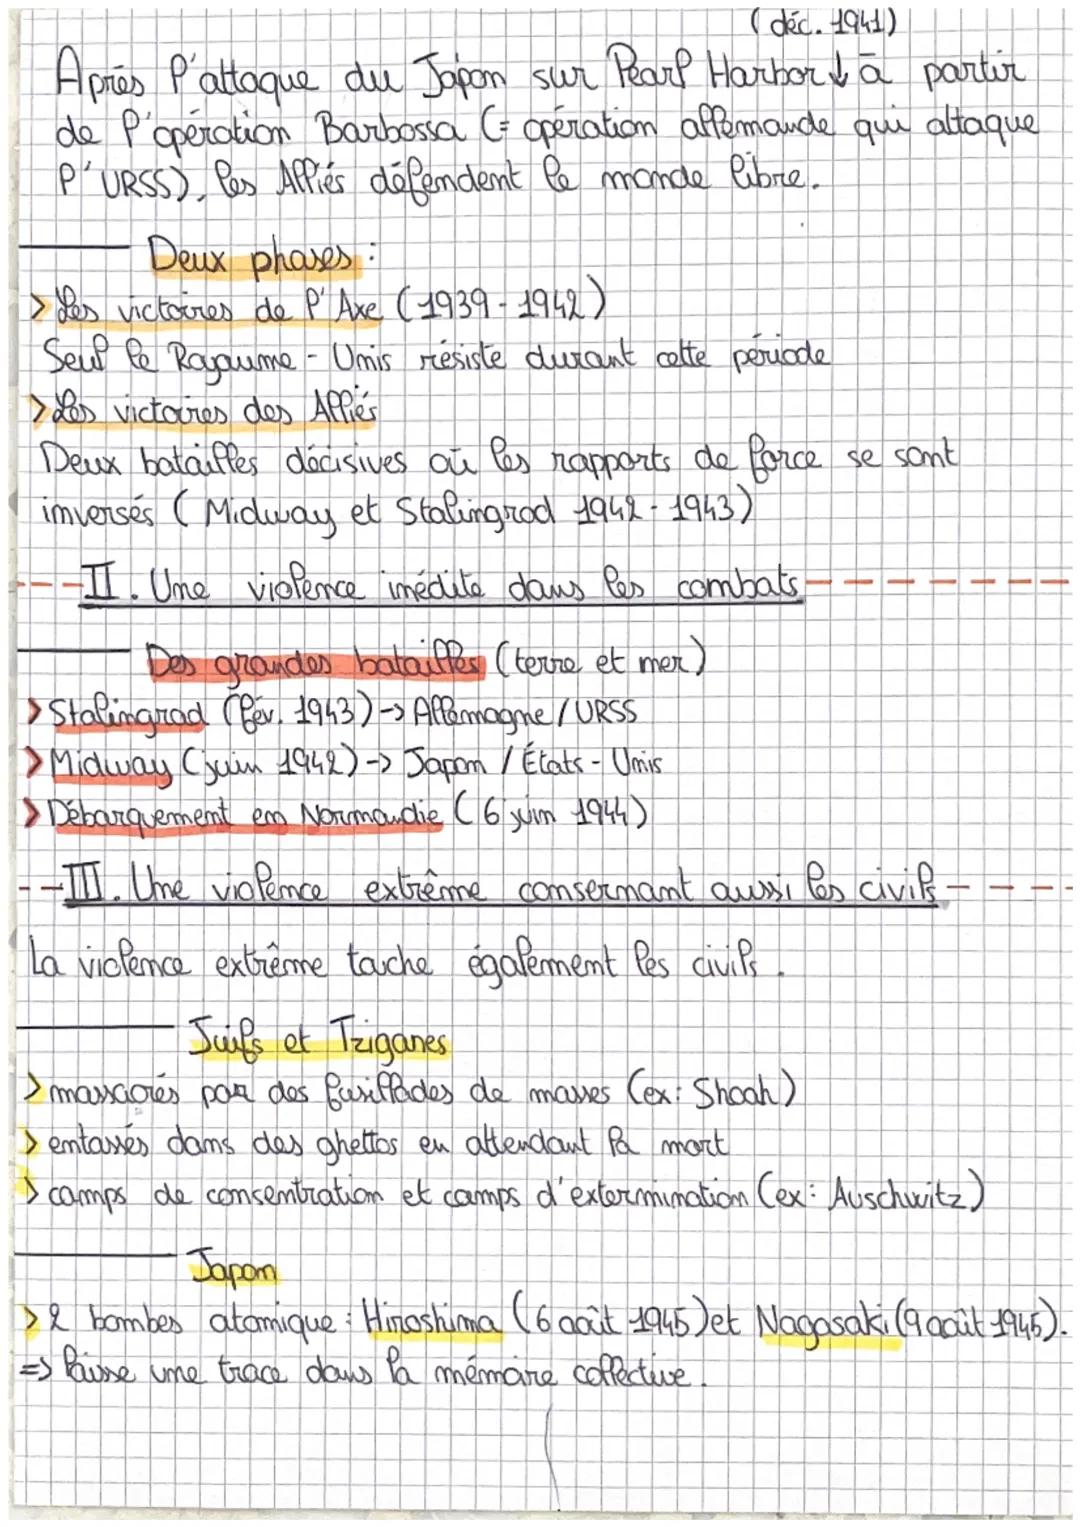 (déc. 1941)
Après l'attaque du Japon sur Pearl Harbor ↓ à partir
de l'opération Barbossa (= opération allemande qui attaque
l'URSS), les Alliés défendent le monde libre.
Deux phases :
> Les victoires de l'Axe (1939 - 1942)
Seul le Royaume - Unis résiste durant cette période
> Les victoires des Alliés
Deux batailles décisives où les rapports de force se sont
inversés (Midway et Stalingrad 1942 - 1943)
II. Une violence inédite dans les combats
Des grandes batailles (terre et mer)
> Stalingrad (fév. 1943) -> Allemagne / URSS
> Midway (juin 1942) -> Japon / États - Unis
> Débarquement en Normandie (6 juin 1944)
III. Une violence extrême consernant aussi les civils
La violence extrême touche également les civils.
Juifs et Tziganes
> massacrés par des fusillades de masses (ex: Shoah)
> entassés dans des ghettos en attendant la mort
> camps de consentration et camps d'extermination (ex: Auschwitz)
Japon
> 2 bombes atomique : Hiroshima (6 août 1945) et Nagasaki (9 août 1945).
=> laisse une trace dans la mémoire collective.